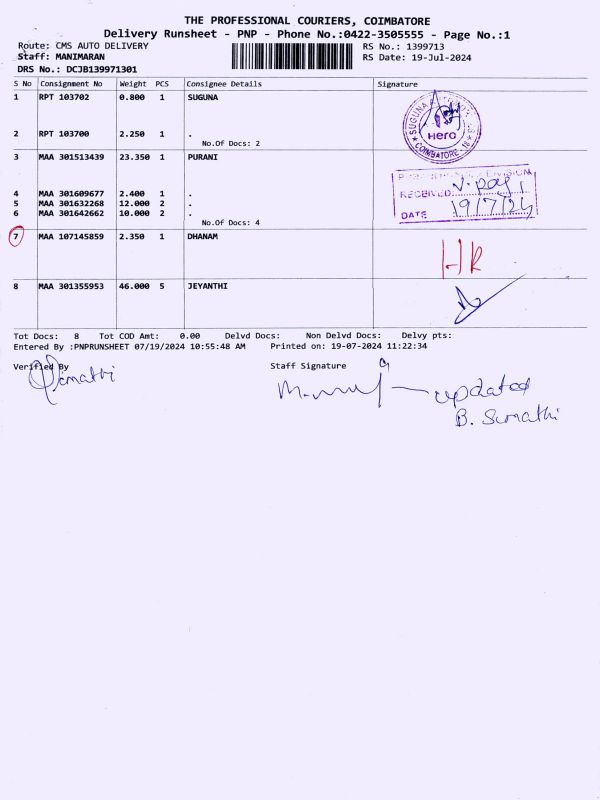 THE PROFESSIONAL COURIERS, COIMBATORE
Delivery Runsheet - PNP - Phone No.:0422-3505555 - Page No.:1
Route: CMS AUTO DELIVERY RS No.: 1399713
Staff: MANIMARAN RS Date: 19-Jul-2024
DRS No.: DCJB139971301
S No Consignment No Weight PCS Consignee Details Signature
1 RPT 103702 0.800 1 SUGUNA
SUGUNA
Hero
COIMBATORE
2 RPT 103700 2.250 1 .
No.Of Docs: 2
3 MAA 301513439 23.350 1 PURANI
RECEIVED
DATE 19/7/24
4 MAA 301609677 2.400 1 .
5 MAA 301632268 12.000 2 .
6 MAA 301642662 10.000 2 .
No.Of Docs: 4
7 MAA 107145859 2.350 1 DHANAM
HR
8 MAA 301355953 46.000 5 JEYANTHI
Tot Docs: 8 Tot COD Amt: 0.00 Delvd Docs: Non Delvd Docs: Delvy pts:
Entered By :PNPRUNSHEET 07/19/2024 10:55:48 AM Printed on: 19-07-2024 11:22:34
Verified By Staff Signature
updated
B. Sumathi